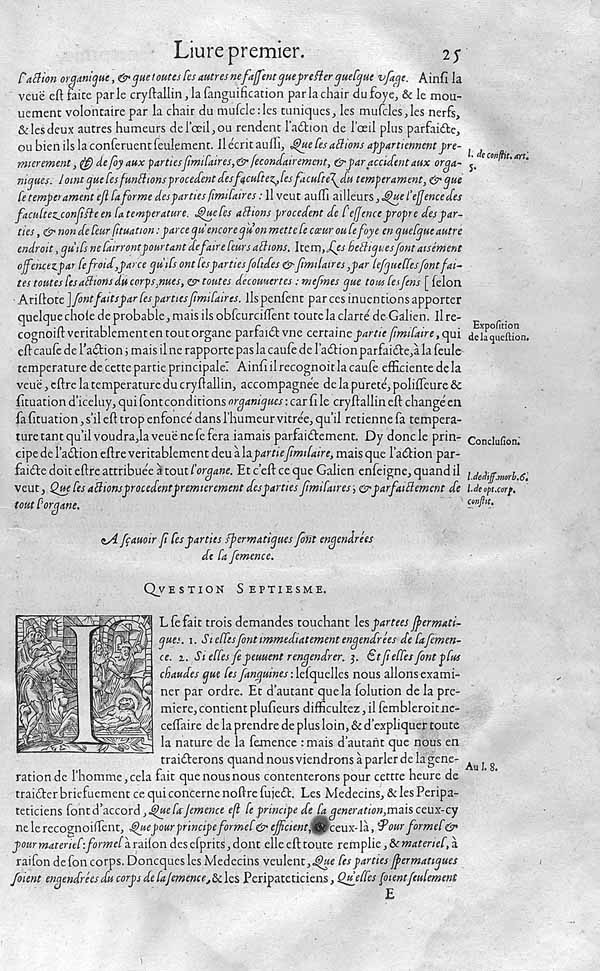 Liure premier. 25
l'action organique, & que toutes les autres ne fassent que prester quelque vsage. Ainsi la
veuë est faite par le crystallin, la sanguification par la chair du foye, & le mou-
uement volontaire par la chair du muscle: les tuniques, les muscles, les nerfs,
& les deux autres humeurs de l'œil, ou rendent l'action de l'œil plus parfaicte,
ou bien ils la conseruent seulement. Il écrit aussi, Que les actions appartiennent pre-
l. de constit. art.
mierement, & de soy aux parties similaires, & secondairement, & par accident aux orga-
5.
niques. Ioint que les functions procedent des facultez, les facultez du temperament, & que
le temperament est la forme des parties similaires: Il veut aussi ailleurs, Que l'essence des
facultez consiste en la temperature. Que les actions procedent de l'essence propre des par-
ties, & non de leur situation: parce qu'encore qu'on mette le cœur ou le foye en quelque autre
endroit, qu'ils ne lairront pourtant de faire leurs actions. Item, Les hectiques sont aisément
offencez par le froid, parce qu'ils ont les parties solides & similaires, par lesquelles sont fai-
tes toutes les actions du corps, nues, & toutes decouuertes: mesmes que tous les sens [selon
Aristote] sont faits par les parties similaires. Ils pensent par ces inuentions apporter
quelque chose de probable, mais ils obscurcissent toute la clarté de Galien. Il re-
Exposition
cognoist veritablement en tout organe parfaict vne certaine partie similaire, qui
de la question.
est cause de l'action; mais il ne rapporte pas la cause de l'action parfaicte, à la seule
temperature de cette partie principale. Ainsi il recognoit la cause efficiente de la
veuë, estre la temperature du crystallin, accompagnée de la pureté, polisseure &
situation d'iceluy, qui sont conditions organiques: car si le crystallin est changé en
sa situation, s'il est trop enfoncé dans l'humeur vitrée, qu'il retienne sa tempera-
ture tant qu'il voudra, la veuë ne se fera iamais parfaictement. Dy donc le prin-
Conclusion.
cipe de l'action estre veritablement deu à la partie similaire, mais que l'action par-
faicte doit estre attribuée à tout l'organe. Et c'est ce que Galien enseigne, quand il
l. de diff. morb. 6.
veut, Que les actions procedent premierement des parties similaires; & parfaictement de
l. de opt. corp.
tout l'organe.
constit.
A sçauoir si les parties spermatiques sont engendrées
de la semence.
QVESTION SEPTIESME.
IL se fait trois demandes touchant les partees spermati-
ques. 1. Si elles sont immediatement engendrées de la semen-
ce. 2. Si elles se peuuent rengendrer. 3. Et si elles sont plus
chaudes que les sanguines: lesquelles nous allons exami-
ner par ordre. Et d'autant que la solution de la pre-
miere, contient plusieurs difficultez, il sembleroit ne-
cessaire de la prendre de plus loin, & d'expliquer toute
la nature de la semence: mais d'autant que nous en
traicterons quand nous viendrons à parler de la gene-
Au l. 8.
ration de l'homme, cela fait que nous nous contenterons pour cettte heure de
traicter briefuement ce qui concerne nostre sujéct. Les Medecins, & les Peripa-
teticiens sont d'accord, Que la semence est le principe de la generation, mais ceux-cy
ne le recognoissent, Que pour principe formel & efficient, & ceux-là, Pour formel &
pour materiel: formel à raison des esprits, dont elle est toute remplie, & materiel, à
raison de son corps. Doncques les Medecins veulent, Que les parties spermatiques
soient engendrées du corps de la semence, & les Peripateticiens, Qu'elles soient seulement
E